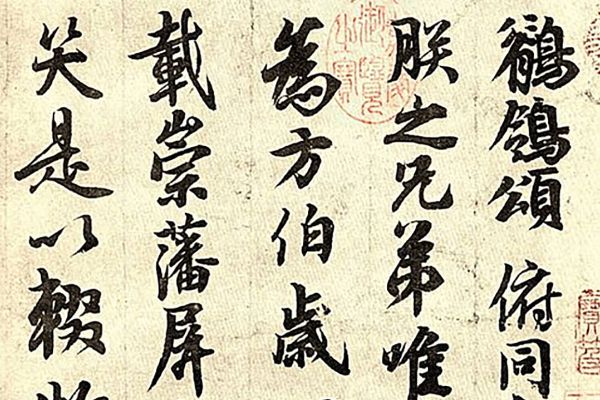 鶺鴒頌 俯同
朕之兄弟唯
爲方伯歲
載崇藩屏
笑是以輟